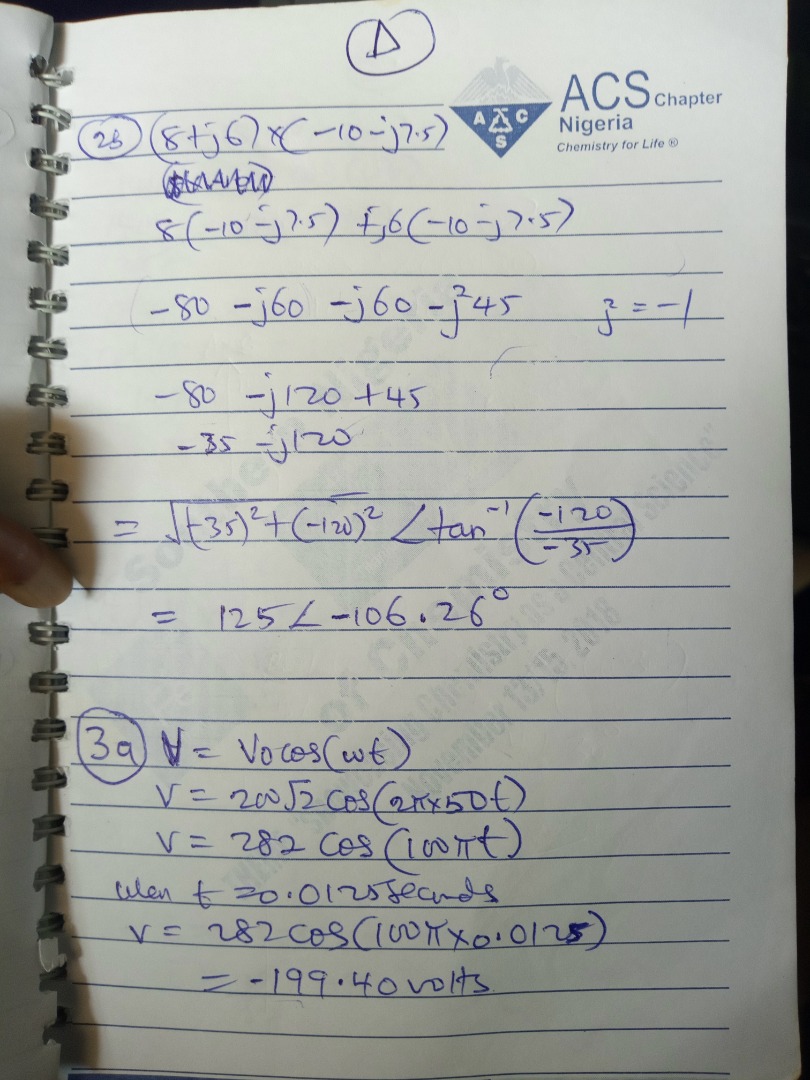 D
ACS Chapter
Nigeria
Chemistry for Life ®
A A C
S
2b (8+j6)×(-10-j7.5)
8(-10-j7.5) +j6(-10-j7.5)
-80 -j60 -j60 -j²45 j² = -1
-80 -j120 +45
-35 -j120
= √(-35)²+(-120)² ∠tan⁻¹(-120/-35)
= 125∠-106.26°
3a V = V₀cos(ωt)
V = 200√2 cos(2π×50t)
V = 282 cos(100πt)
when t = 0.0125 seconds
V = 282cos(100π×0.0125)
= -199.40 volts